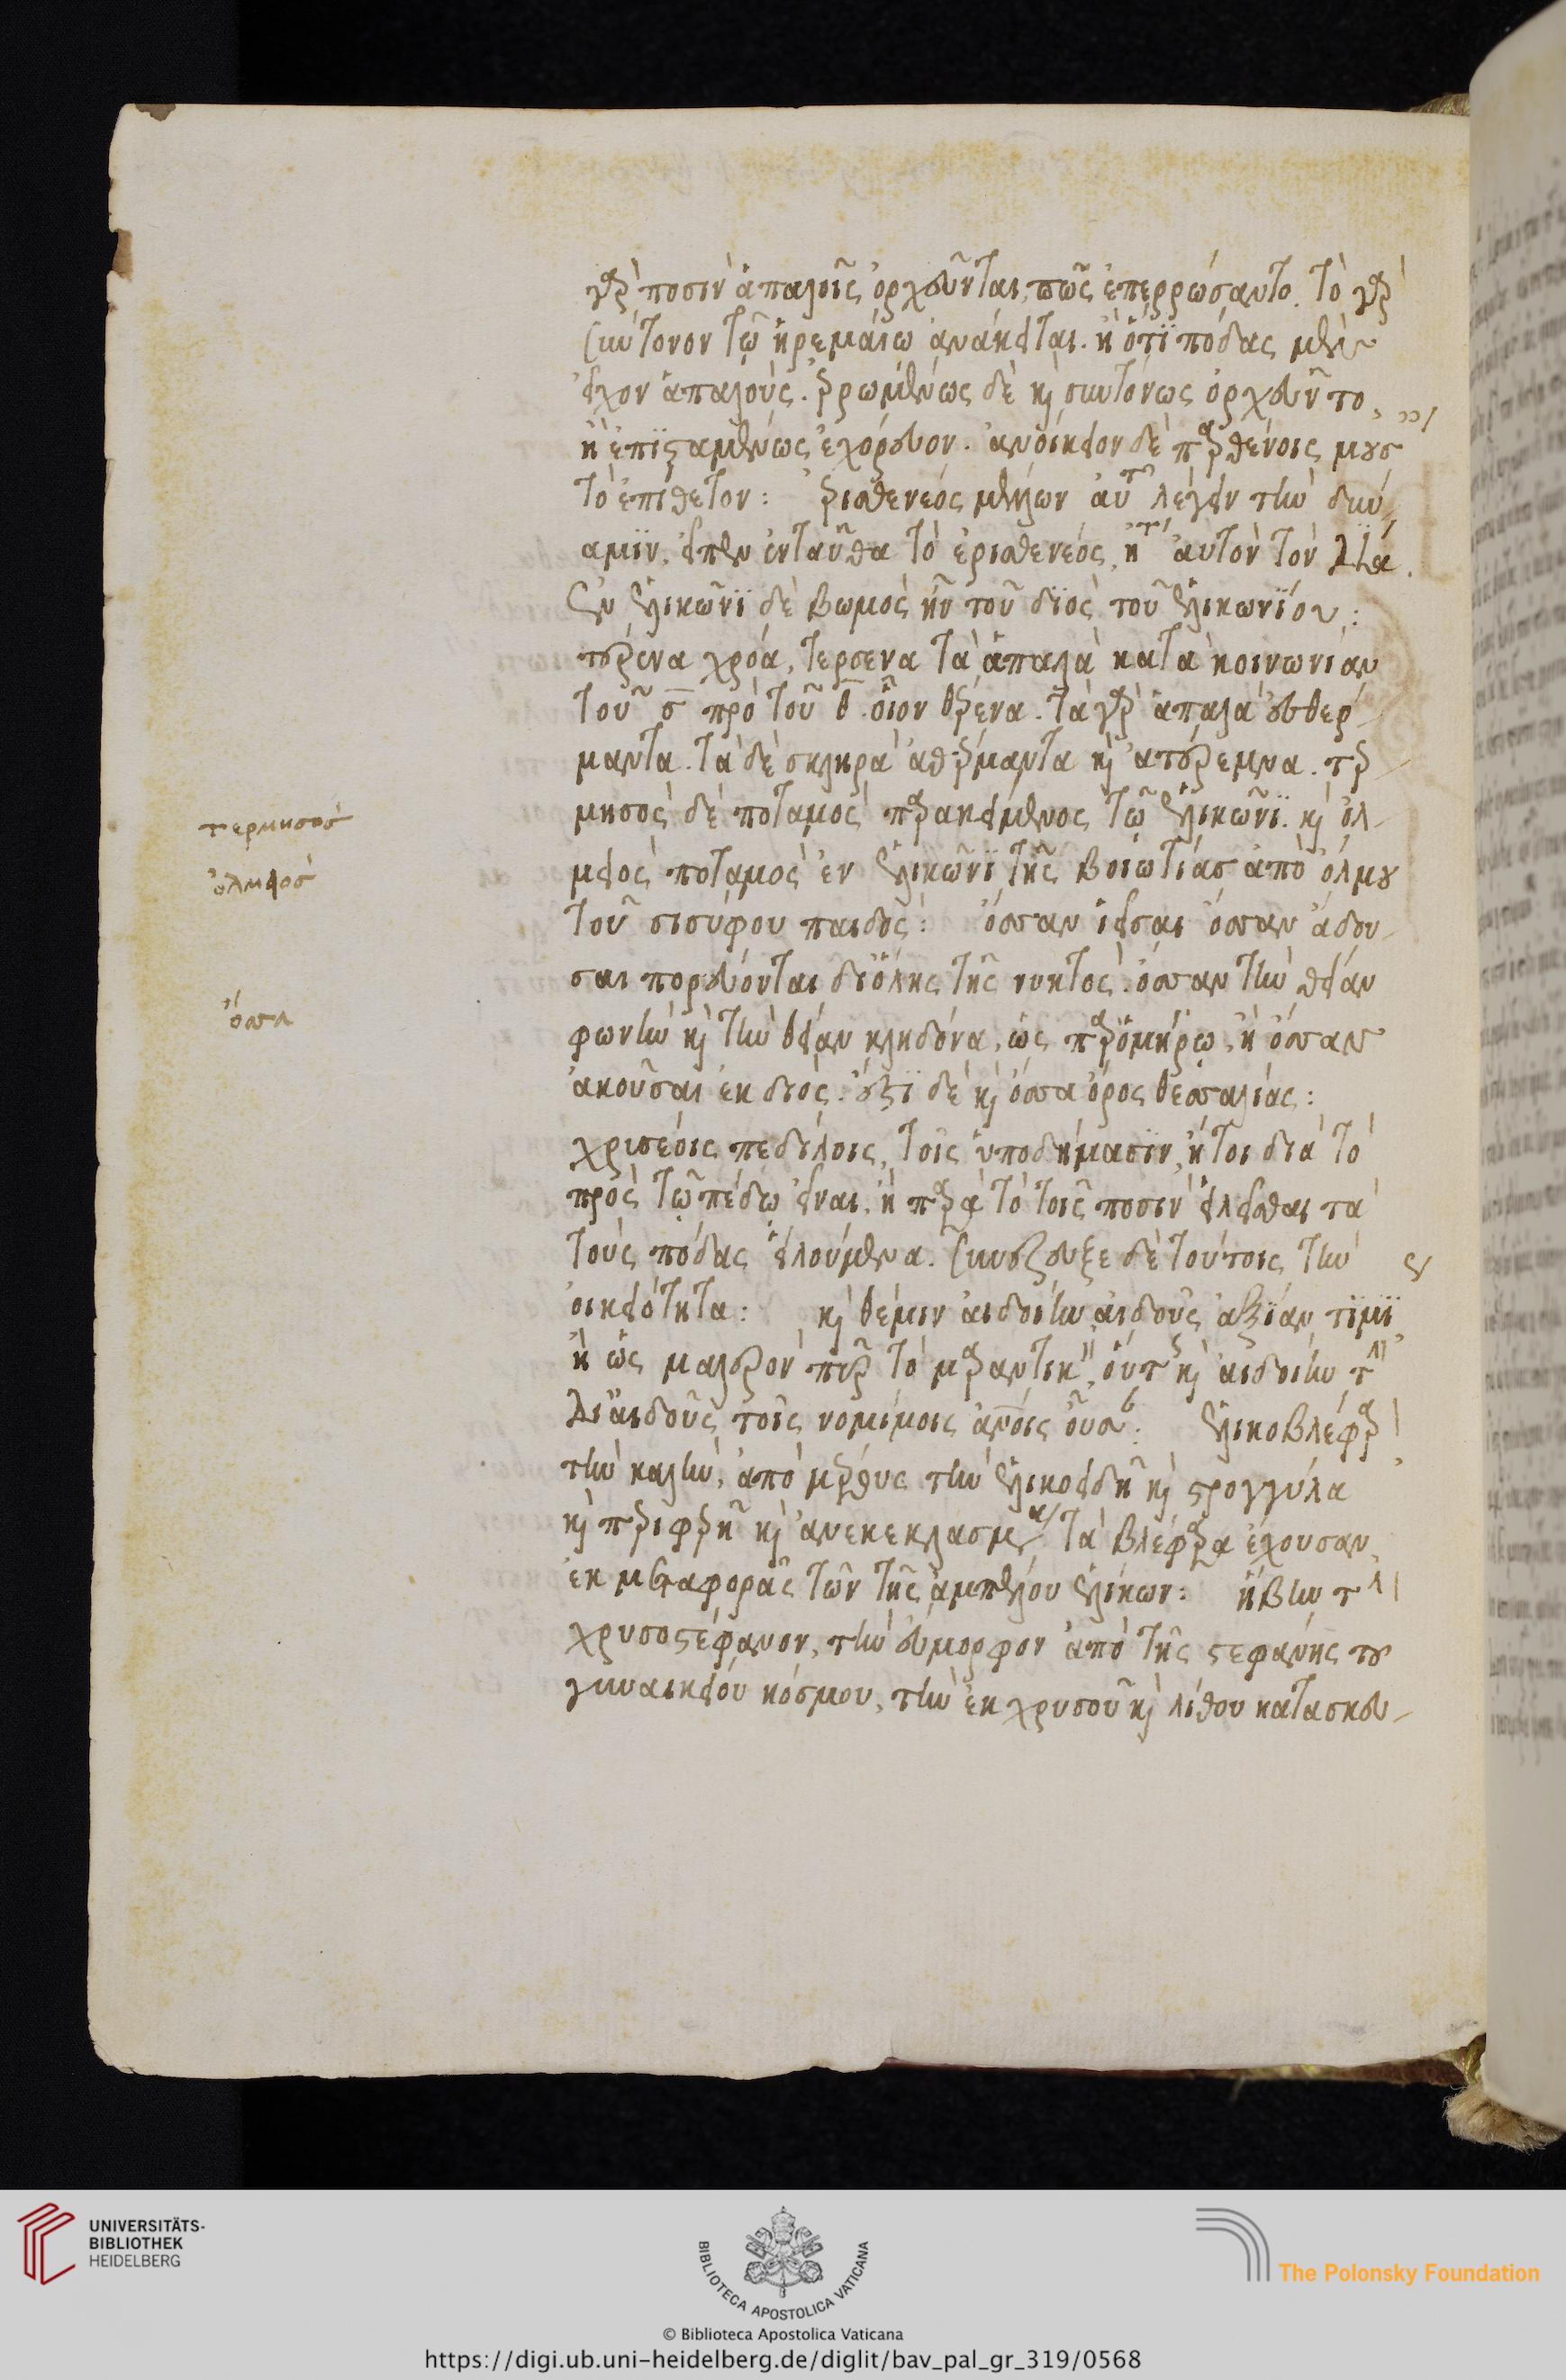 γὰρ ποσὶν ἁπαλοῖς ὀρχοῦνται, πῶς ἐπερρώσαντο. τὸ γὰρ
σύντονον τῷ ἠρεμαίῳ ἀνάκειται. ἢ ὅτι πόδας μὲν
εἶχον ἁπαλούς. ἐρρωμένως δὲ καὶ συντόνως ὀρχεῦντο,
ἢ ἐπισταμένως ἐχόρευον. ἀνοίκειον δὲ παρθένοις μούσ
τὸ ἐπίθετον: ἐρισθενέος μέλλων αὐτ λέγειν τὴν δύν
αμιν, εἶπεν ἐνταῦθα τὸ ἐρισθενέος, ἢ αὐτὸν τὸν Δία.
ἐν ἑλικῶνι δὲ βωμὸς ἦν τοῦ διὸς τοῦ ἑλικωνίου:
τέρενα χρόα, τέρσενα τὰ ἁπαλὰ κατὰ κοινωνίαν
τοῦ σ πρὸ τοῦ θ. οἷον θέρενα. τὰ γὰρ ἁπαλὰ εὐθέρ
μαντα. τὰ δὲ σκληρὰ ἀθέρμαντα καὶ ἀτέρεμνα. τερ
μησὸς δὲ ποταμὸς παρακείμενος τῷ ἑλικῶνι. καὶ ὀλ
μειὸς ποταμὸς ἐν ἑλικῶνι τῆς βοιωτίας ἀπὸ ὄλμου
τοῦ σισύφου παιδός: ὄσσαν ἱεῖσαι ὄσσαν ἄδου
σαι πορεύονται διόλης τῆς νυκτός. ὄσσαν τὴν θείαν
φωνὴν καὶ τὴν θείαν κληδόνα, ὡς παρ ὁμήρῳ, ἢ ὄσσαν
ἀκοῦσαι ἐκ διός. ἔστι δὲ καὶ ὄσσα ὄρος θεσσαλίας:
χρυσέοις πεδίλοις, τοῖς ὑποδήμασιν, ἤτοι διὰ τὸ
πρὸς τῷ πέδῳ εἶναι, ἢ παρὰ τὸ τοῖς ποσὶν εἰλεῖσθαι τὰ
τοὺς πόδας εἰλούμενα. συνέζευξε δὲ τούτοις τὴν
οἰκειότητα: καὶ θέμιν αἰδοίην, αἰδοῦς ἀξίαν τιμι
ἢ ὡς μαλερὸν πῦρ τὸ μαραντικ, οὕτ καὶ αἰδοίην τ
δι αἰδοῦς τοῖς νομίμοις ἀνοις οὖσ: ἑλικοβλέφαρ
τὴν καλὴν, ἀπὸ μέρους τὴν ἑλικοειδῆ καὶ στρογγύλα
καὶ περιφερῆ καὶ ἀνεκεκλασμένα τὰ βλέφαρα ἔχουσαν,
ἐκ μεταφορᾶς τῶν τῆς ἀμπέλου ἑλίκων: ἥβην τ
χρυσοστέφανον, τὴν εὔμορφον ἀπὸ τῆς στεφάνης τοῦ
γυναικείου κόσμου, τὴν ἐκ χρυσοῦ καὶ λίθου κατασκευ
τερμησὸσ
ὀλμειὸσ
ὄσσα
UNIVERSITÄTS-
BIBLIOTHEK
HEIDELBERG
BIBLIOTECA APOSTOLICA VATICANA
The Polonsky Foundation
© Biblioteca Apostolica Vaticana
https://digi.ub.uni-heidelberg.de/diglit/bav_pal_gr_319/0568